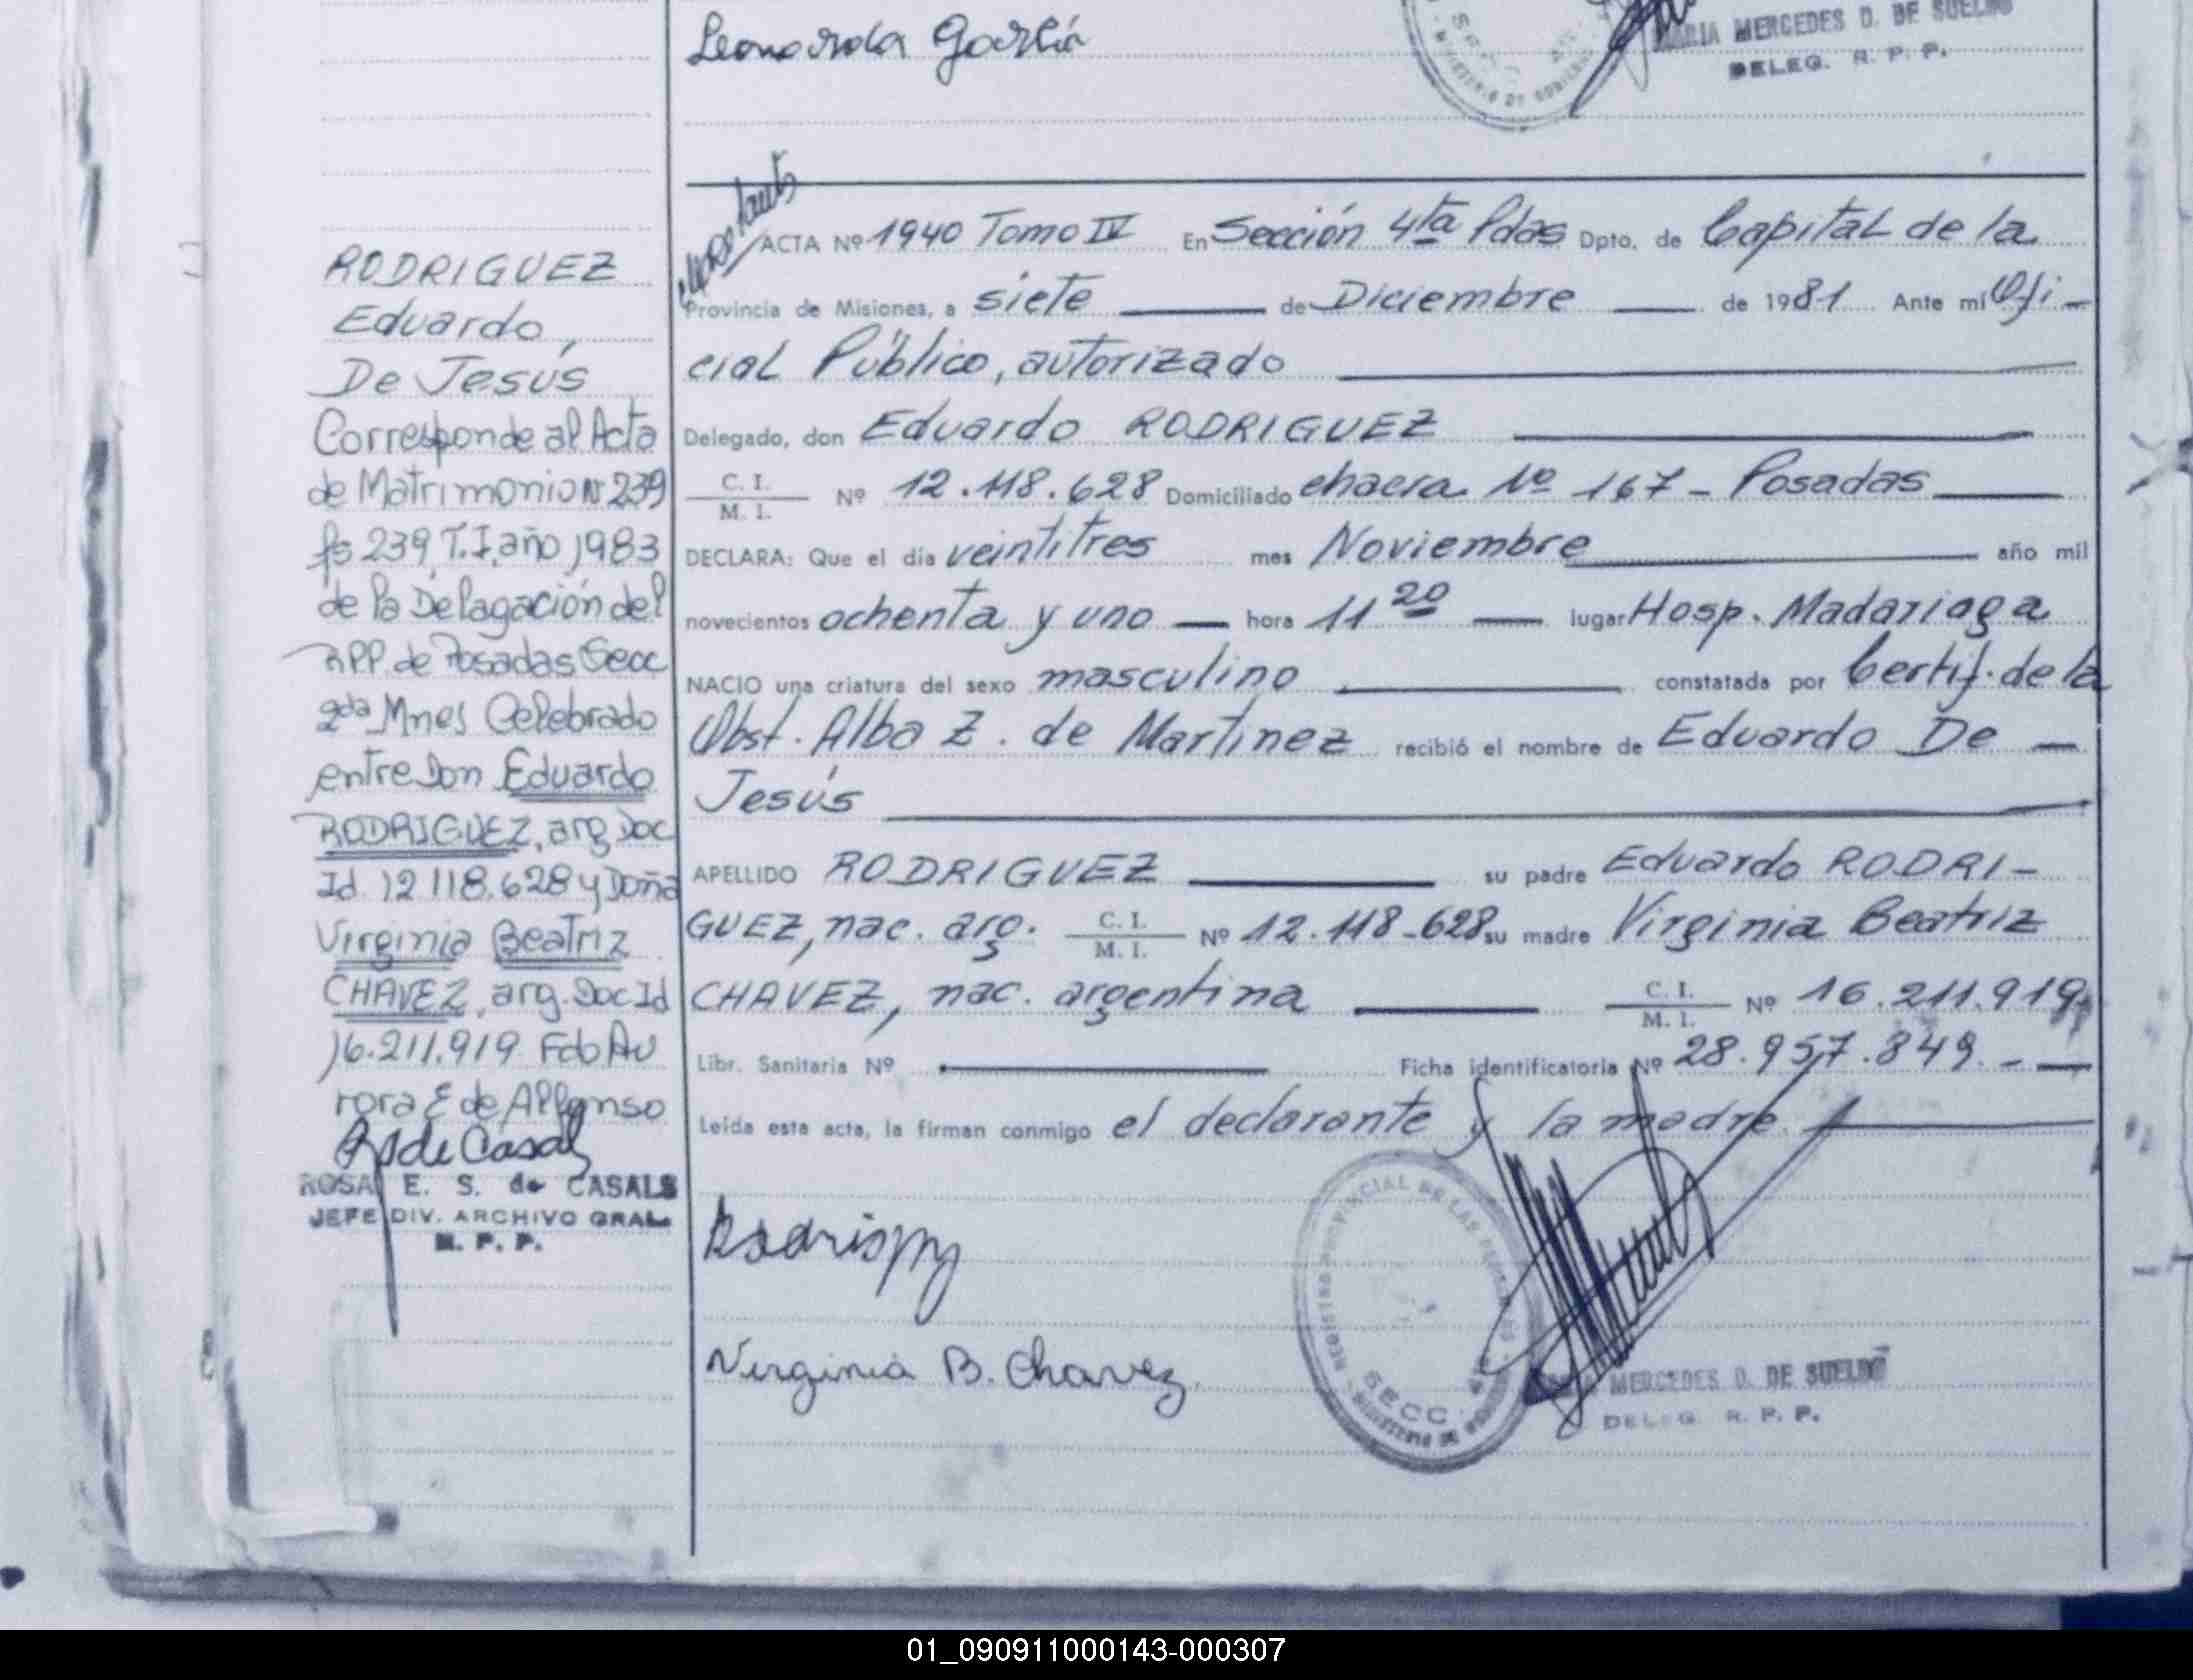 Leonarda
MARIA MERCEDES D. DE SUELDO
DELEG. R. P. P.
RODRIGUEZ
Eduardo,
De Jesús
Corresponde al Acta
de Matrimonio Nº 239
fs 239, T. I, año 1983
de la Delagación del
RPP. de Posadas Secc
2da Mnes Celebrado
entre Don Eduardo
RODRIGUEZ, arg Doc
Id. 12 118.628 y Doña
Virginia Beatriz
CHAVEZ, arg. Doc Id
16.211.919 Fdo Au
rora E de Alfonso
ROSA E. S. de CASALS
JEFE DIV. ARCHIVO GRAL.
R. P. P.
ACTA Nº 1940 Tomo IV En Sección 4ta Pdas Dpto. de Capital de la
Provincia de Misiones, a siete de Diciembre de 1981 Ante mí Ofi-
cial Público, autorizado
Delegado, don Eduardo RODRIGUEZ
C. I.
M. I. Nº 12.118.628 Domiciliado chacra Nº 167 - Posadas
DECLARA: Que el día veintitres mes Noviembre año mil
novecientos ochenta y uno hora 11 20 lugar Hosp. Madariaga
NACIO una criatura del sexo masculino constatada por Certif. de la
Obst. Alba Z. de Martinez recibió el nombre de Eduardo De
Jesús
APELLIDO RODRIGUEZ su padre Eduardo RODRI-
GUEZ, nac. arg. C. I. M. I. Nº 12.118.628 su madre Virginia Beatriz
CHAVEZ, nac. argentina C. I. M. I. Nº 16.211.919
Libr. Sanitaria Nº Ficha identificatoria Nº 28.957.849.-
Leída esta acta, la firman conmigo el declarante y la madre.
Virginia B. Chavez
REGISTRO PROVINCIAL DE LAS PERSONAS
SECC.
MERCEDES D. DE SUELDO
DELEG. R. P. P.
01_090911000143-000307